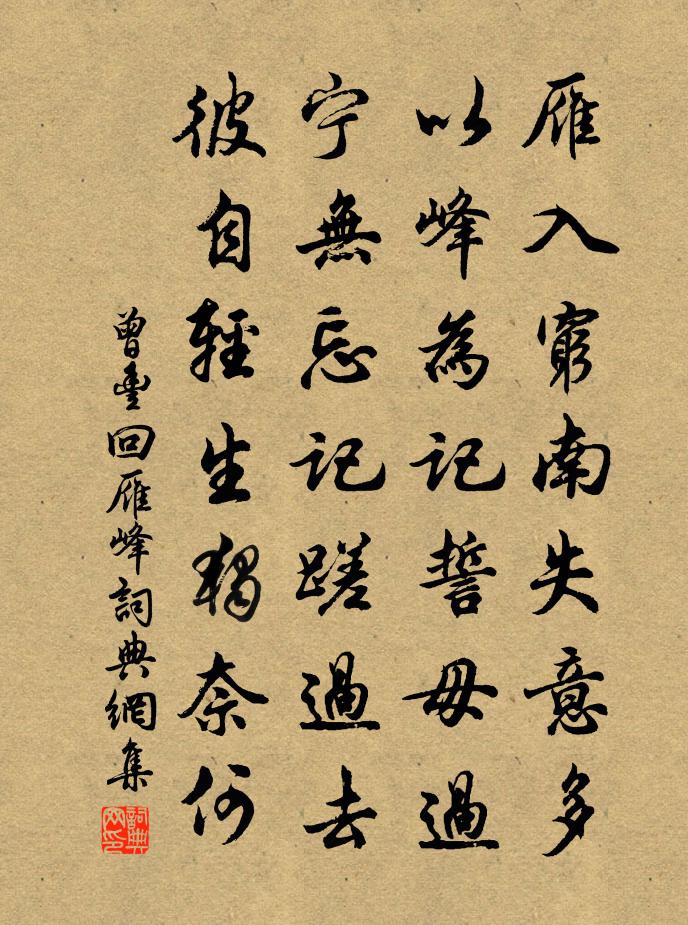 雁入窮南失意多
以峰為記誓毋過
宁無忘記蹉過去
彼自輕生獨奈何
曾豊回雁峰詞典網集
詞典网印